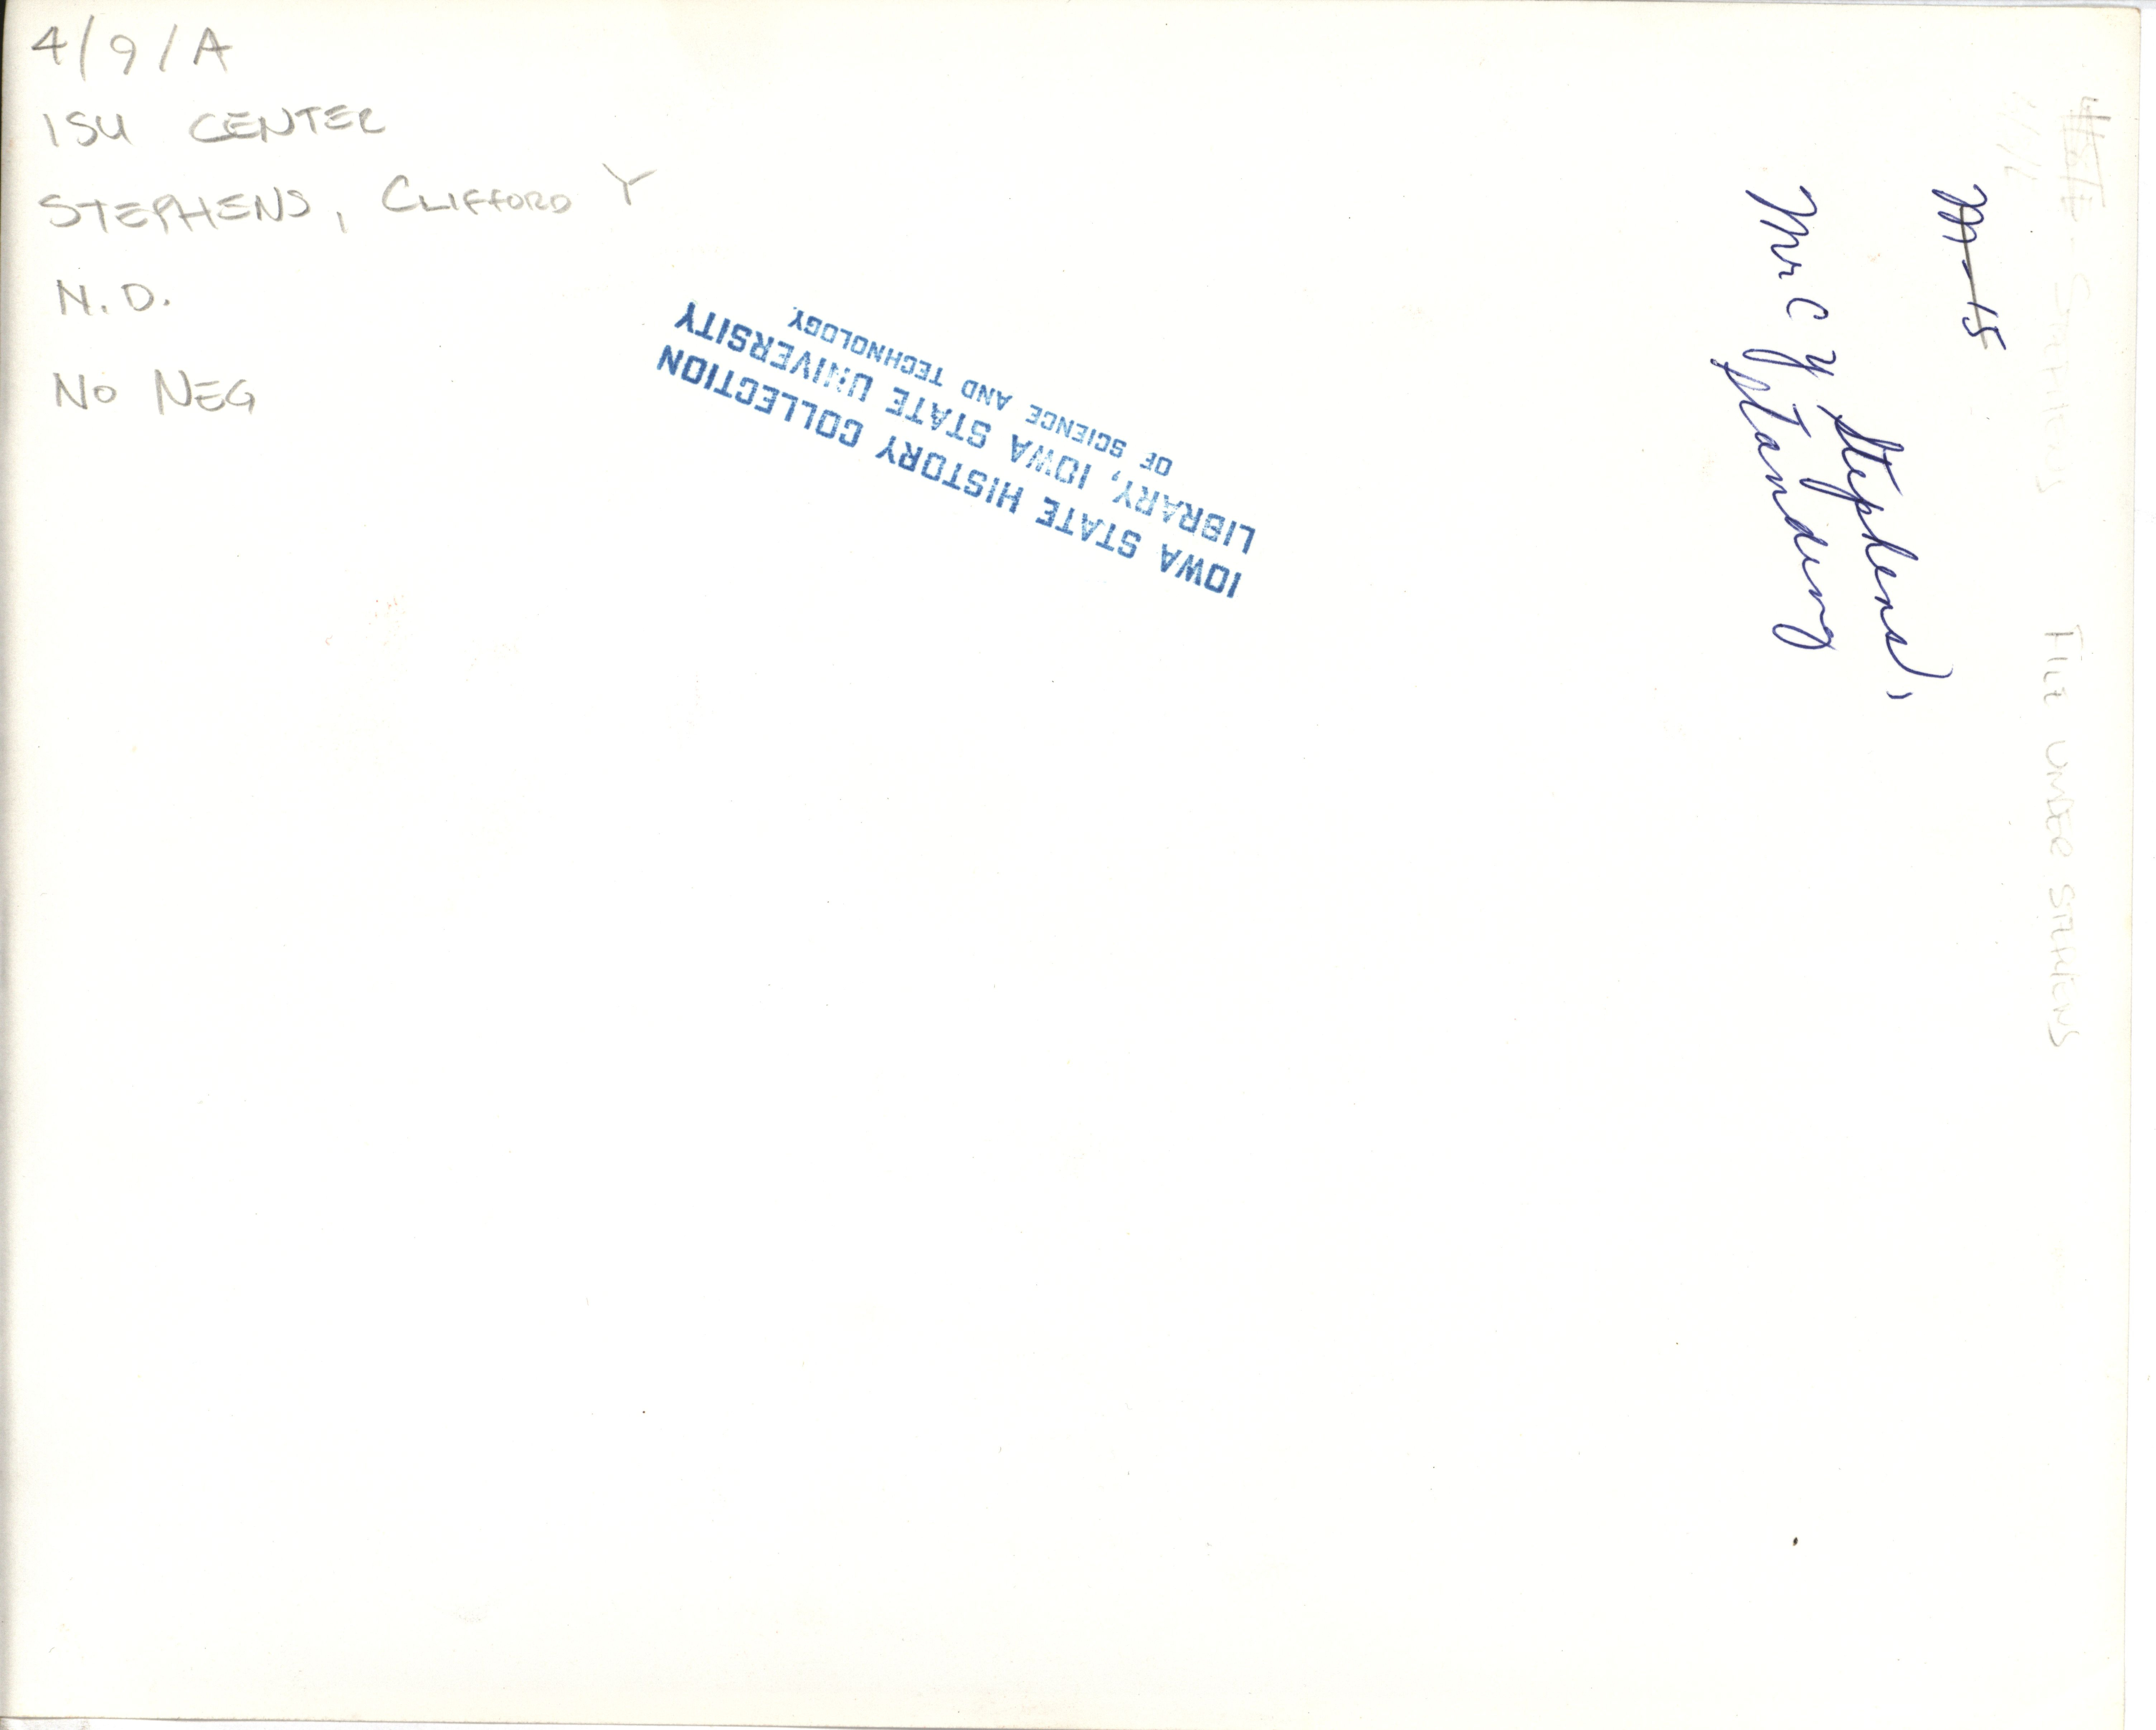 4/9/A
ISU CENTER
STEPHENS, CLIFFORD Y
N.D.
NO NEG
IOWA STATE HISTORY COLLECTION
LIBRARY, IOWA STATE UNIVERSITY
OF SCIENCE AND TECHNOLOGY
M-15
Mr C Y Stephens,
standing
STEPHENS
FILE UNDER STEPHENS